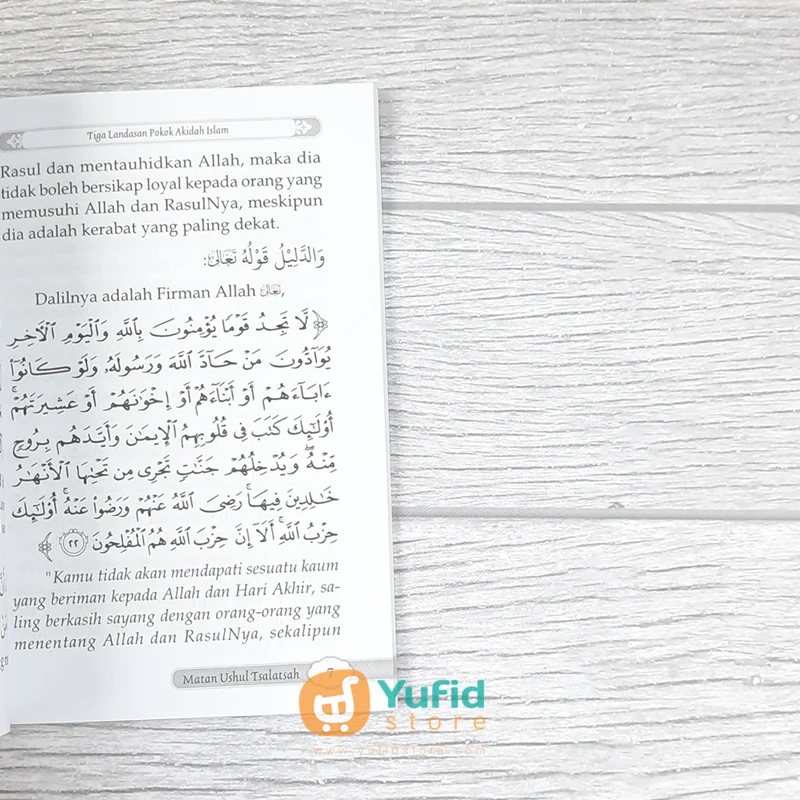 Tiga Landasan Pokok Akidah Islam
Rasul dan mentauhidkan Allah, maka dia
tidak boleh bersikap loyal kepada orang yang
memusuhi Allah dan RasulNya, meskipun
dia adalah kerabat yang paling dekat.
وَالدَّلِيْلُ قَوْلُهُ تَعَالَىٰ:
Dalilnya adalah Firman Allah تعالى,
﴿لَّا تَجِدُ قَوْمًا يُؤْمِنُونَ بِٱللَّهِ وَٱلْيَوْمِ ٱلْأَخِرِ
يُوَآدُّونَ مَنْ حَآدَّ ٱللَّهَ وَرَسُولَهُۥ وَلَوْ كَانُوٓا۟
ءَابَآءَهُمْ أَوْ أَبْنَآءَهُمْ أَوْ إِخْوَٰنَهُمْ أَوْ عَشِيرَتَهُمْ ۚ
أُو۟لَـٰٓئِكَ كَتَبَ فِى قُلُوبِهِمُ ٱلْإِيمَـٰنَ وَأَيَّدَهُم بِرُوحٍ
مِّنْهُ ۖ وَيُدْخِلُهُمْ جَنَّـٰتٍ تَجْرِى مِن تَحْتِهَا ٱلْأَنْهَـٰرُ
خَـٰلِدِينَ فِيهَا ۚ رَضِىَ ٱللَّهُ عَنْهُمْ وَرَضُوا۟ عَنْهُ ۚ أُو۟لَـٰٓئِكَ
حِزْبُ ٱللَّهِ ۚ أَلَآ إِنَّ حِزْبَ ٱللَّهِ هُمُ ٱلْمُفْلِحُونَ ٢٢﴾
"Kamu tidak akan mendapati sesuatu kaum
yang beriman kepada Allah dan Hari Akhir, sa-
ling berkasih sayang dengan orang-orang yang
menentang Allah dan RasulNya, sekalipun
Matan Ushul Tsalatsah 7
Yufid
store
www.yufidstore.com